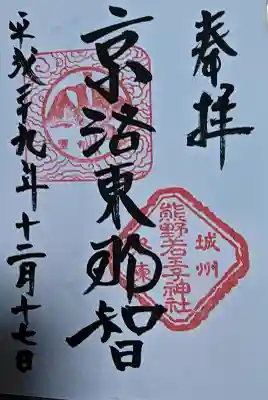 奉拝
京洛東那智
熊野若王子神社
城州
平成二十九年十二月十七日